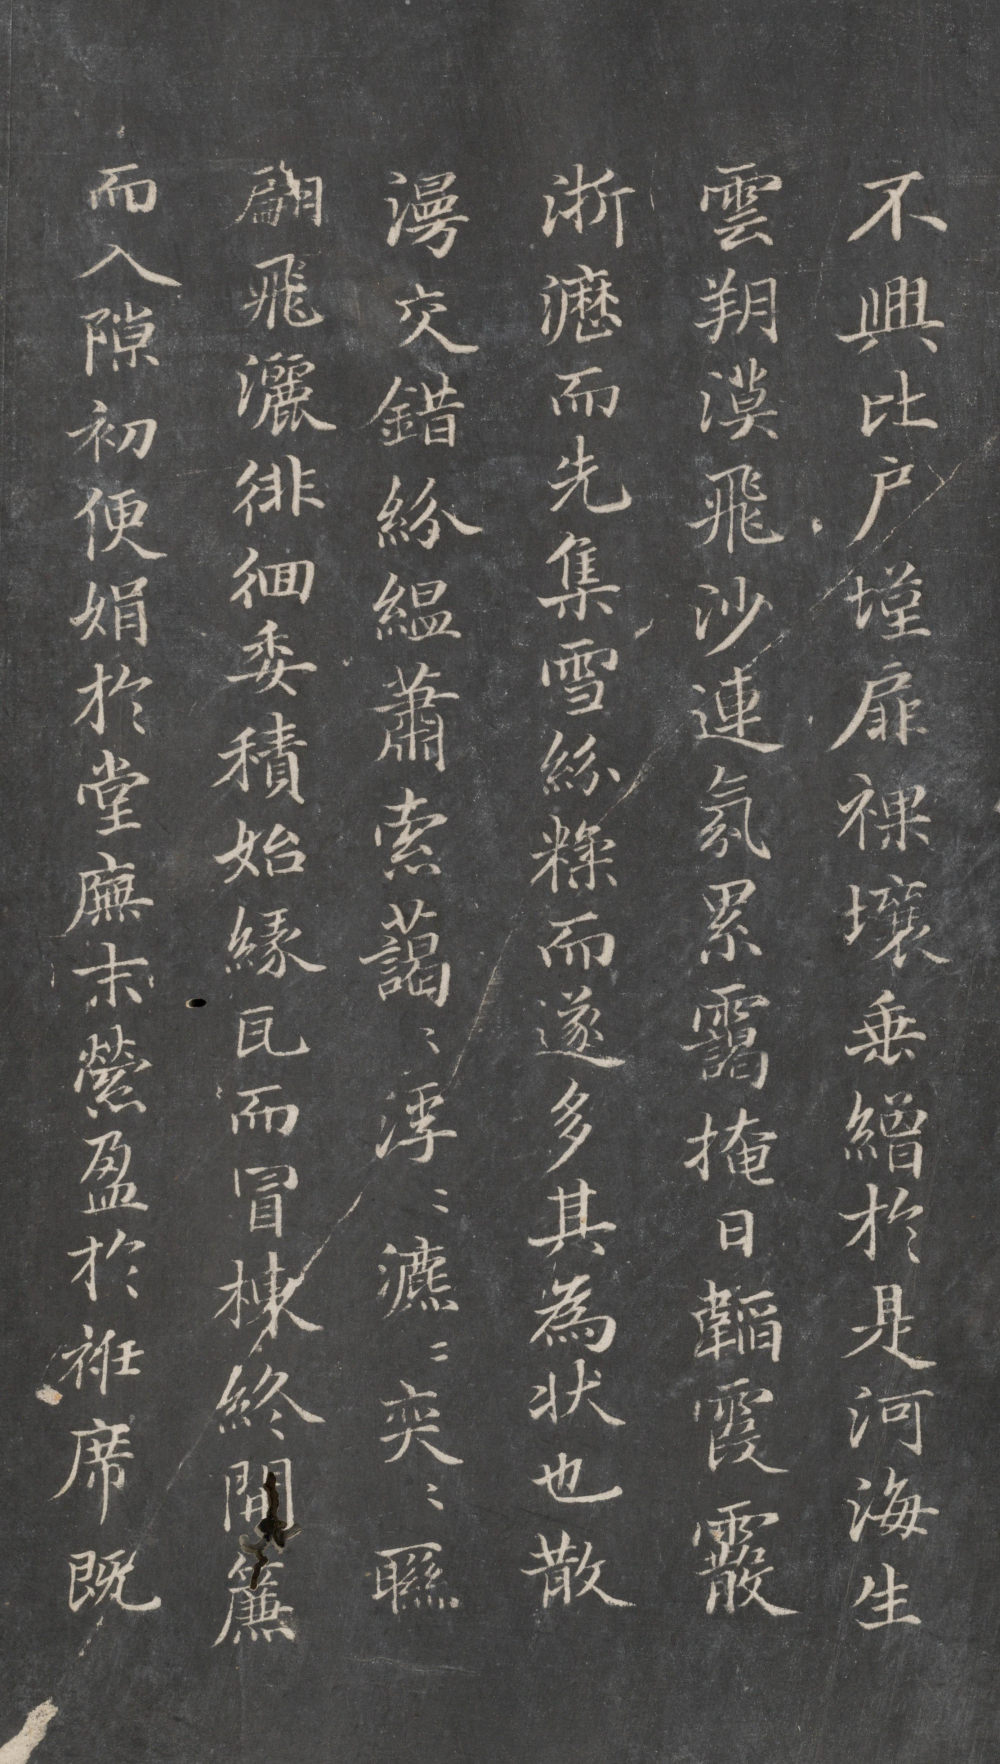 不興北户墐扉裸壤垂繒於是河海生
雲朔漠飛沙連氛累靄掩日韜霞霰
淅瀝而先集雪紛糅而遂多其為状也散
漫交錯紛縕蕭索藹〻浮〻瀌〻奕〻聯
翩飛灑徘徊委積始緣瓦而冒棟終開簾
而入隙初便娟於堂廡末縈盈於帷席既